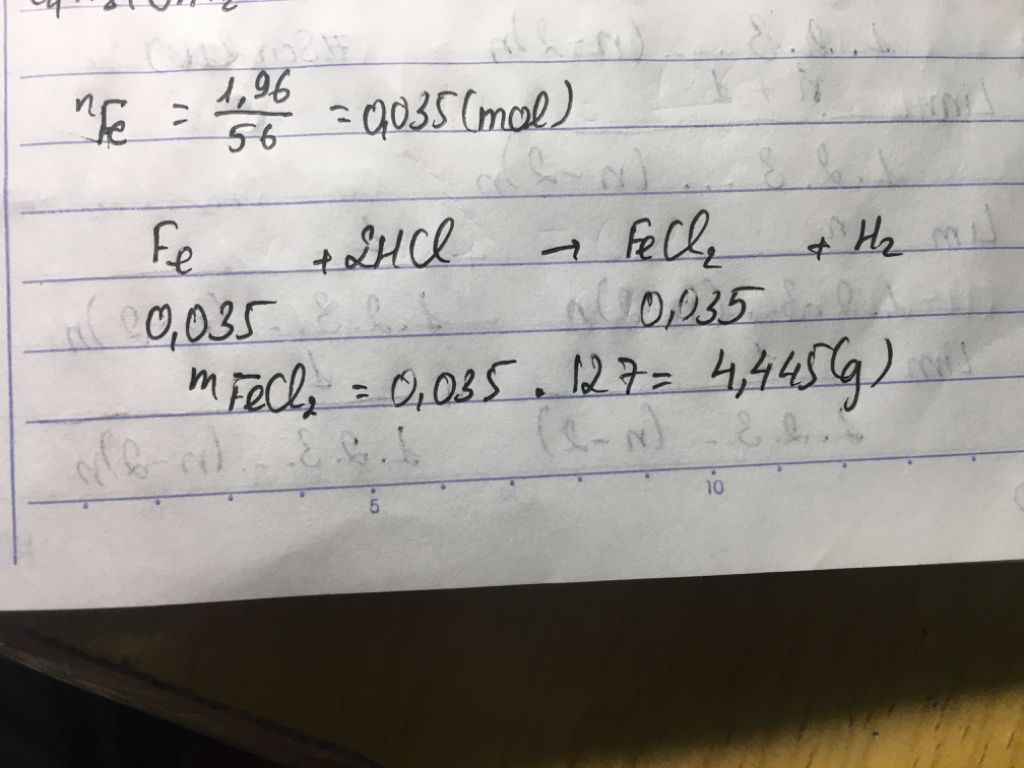 nFe = 1,96/56 = 0,035 (mol)
Fe + 2HCl → FeCl₂ + H₂
0,035 0,035
mFeCl₂ = 0,035 . 127 = 4,445(g)
5 10